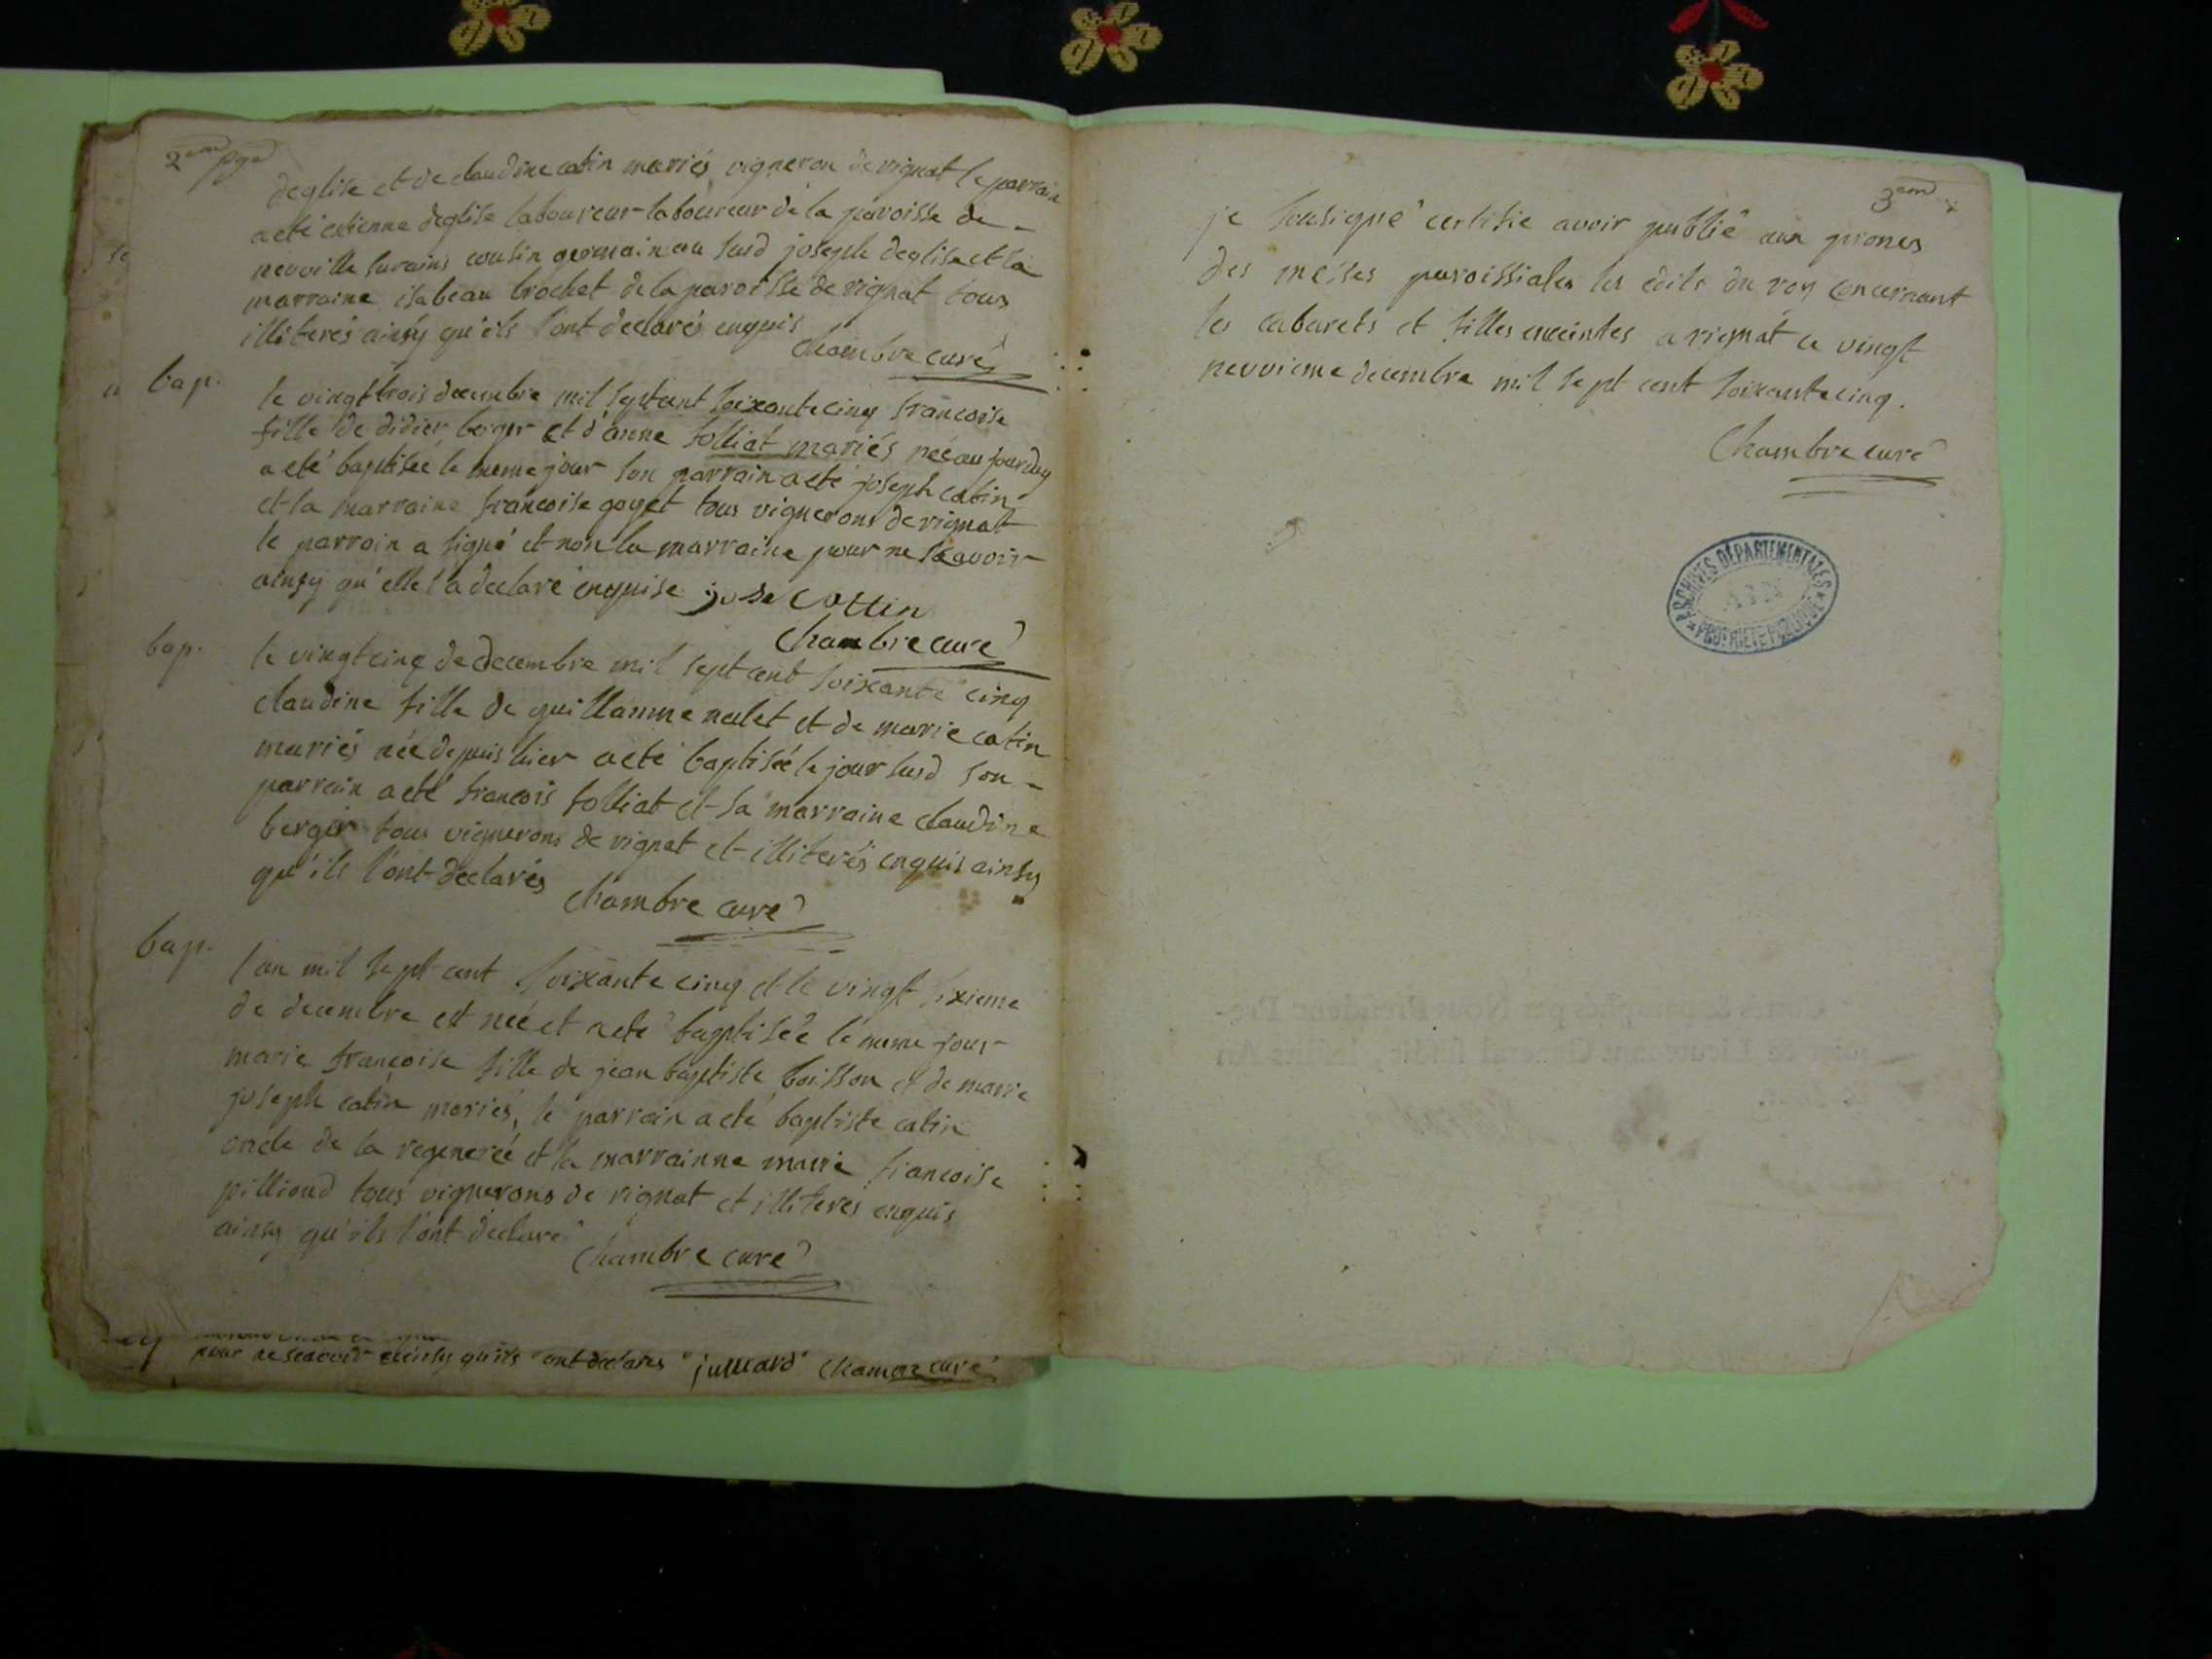 2em pge
deglise et de claudine catin mariés vigneron de rignat le parrain
a eté estienne deglise laboureur laboureur de la paroisse de
neuville surains cousin germain au susd joseph deglise et la
marraine isabeau brochet de la paroisse de rignat tous
illiterés ainsy qu'ils l'ont declarés enquis
Chambre curé
bap.
le vingt trois decembre mil sept cent soixante cinq francoise
fille de didier berger et d'anne solliat mariés née aujourduy
a eté baptisée le meme jour son parrain a eté joseph catin
et la marraine francoise goyet tous vignerons de rignat
le parrain a signé et non la marraine pour ne scavoir
ainsy qu'elle l'a declaré enquise jose cottin
Chambre curé
bap.
le vingt cinq de decembre mil sept cent soixante cinq
claudine fille de guillaume nalet et de marie catin
mariés née depuis hier a eté baptisée le jour susd son
parrain a eté francois solliat et sa marraine claudine
berger tous vignerons de rignat et illiterés enquis ainsy
qu'ils l'ont declarés
Chambre curé
bap.
l'an mil sept cent soixante cinq et le vingt sixieme
de decembre est née et a eté baptisée le meme jour
marie françoise fille de jean baptiste boisson et de marie
joseph catin mariés, le parrain a eté baptiste catin
oncle de la regenerée et la marrainne marie francoise
pilliond tous vignerons de rignat et illiterés enquis
ainsy qu'ils l'ont declaré
Chambre curé
pour ne scavoir ainsy qu'ils ont declarés juillard Chambre curé
3em
je sousigné certifie avoir publié aux prones
des messes paroissiales les edits du roy concernant
les cabarets et filles enceintes a rignat ce vingt
neuvieme decembre mil sept cent soixante cinq.
Chambre curé
ARCHIVES DÉPARTEMENTALES
AIN
PROPRIÉTÉ PUBLIQUE